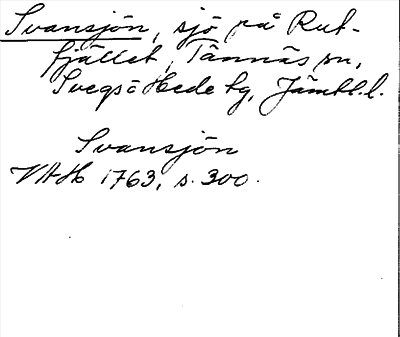 Svansjön, sjö på Rut-
fjället, Tännäs sn,
Svegs o Hede tg, Jämtl. l.
Svansjön
VAH 1763, s. 300.